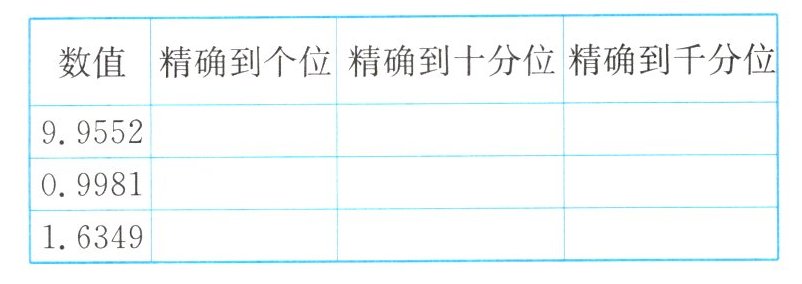 数值 精确到个位 精确到十分位 精确到千分位
9.9552
0.9981
1.6349